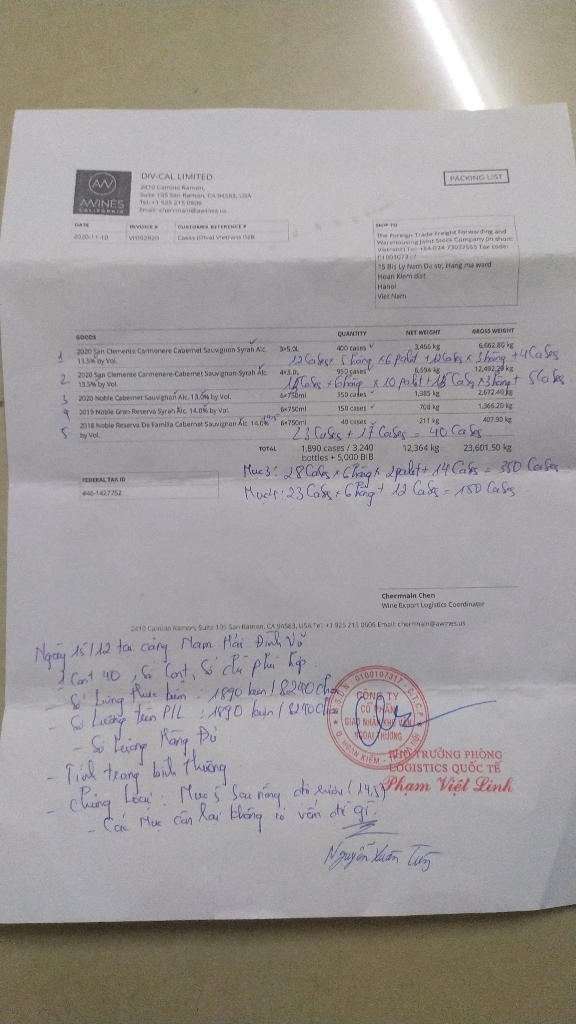 AWINES
CALIFORNIA
DIV-CAL LIMITED
2410 Camino Ramon,
Suite 105 San Ramon, CA 94583, USA
Tel: +1 925 215 0606
Email: chermain@awines.us
PACKING LIST
DATE INVOICE # CUSTOMER REFERENCE #
2020-11-10
SHIP TO
The Foreign Trade Freight Forwarding and
Warehousing Joint Stock Company (in short:
15 Bis Ly Nam De str, Hang ma ward
Hoan Kiem dist
Hanoi
Viet Nam
GOODS QUANTITY NET WEIGHT GROSS WEIGHT
1 2020 San Clemente Carmenere Cabernet Sauvignon Syrah Alc. 13.5% by Vol. 3×5.0L 400 cases 3,466 kg 6,662.80 kg
12 Cases × 5 hàng × 6 palet + 12 Cases × 3 hàng + 4 Cases
2 2020 San Clemente Carmenere-Cabernet Sauvignon Syrah Alc. 13.5% by Vol. 4×3.0L 950 cases 6,594 kg 12,492.20 kg
× 6 hàng × 10 palet + Cases × 3 hàng + 5 Cases
3 2020 Noble Cabernet Sauvignon Alc. 13.0% by Vol. 6×750ml 350 cases 1,385 kg 2,672.40 kg
4 2019 Noble Gran Reserva Syrah Alc. 14.0% by Vol. 6×750ml 150 cases 708 kg 1,366.20 kg
5 2018 Noble Reserva De Familia Cabernet Sauvignon Alc. 14.0% by Vol. 6×750ml 40 cases 211 kg 407.90 kg
23 Cases + 17 Cases = 40 Cases
TOTAL 1,890 cases / 3,240 bottles + 5,000 BIB 12,364 kg 23,601.50 kg
Mục 3: 28 Cases × 6 hàng × 2 palet + 14 Cases = 350 Cases
Mục 4: 23 Cases × 6 hàng + 12 Cases = 150 Cases
FEDERAL TAX ID
#46-1427752
Chermain Chen
Wine Export Logistics Coordinator
2410 Camino Ramon, Suite 105 San Ramon, CA 94583, USA Tel: +1 925 215 0606 Email: chermain@awines.us
Ngày 15/12 tại cảng Nam Hải Đình Vũ
1 Cont 40, Số Cont, Số chì phù hợp
- Số lượng thực kiện: 1890 kiện / 8240 chai
- Số lượng trên P/L: 1890 kiện / 8240 chai
- Số lượng hàng Đủ
- Tình trạng bình thường
- Chủng loại: Mục 5 Sai nồng độ rượu (14,5)
- Các Mục còn lại không có vấn đề gì.
Nguyễn Xuân
M.S.D.N: 0100107317 - C.T.C.P
CÔNG TY
CỔ PHẦN
GIAO NHẬN KHO VẬN
NGOẠI THƯƠNG
Q. HOÀN KIẾM - TP HÀ NỘI
PHÓ TRƯỞNG PHÒNG
LOGISTICS QUỐC TẾ
Phạm Việt Linh